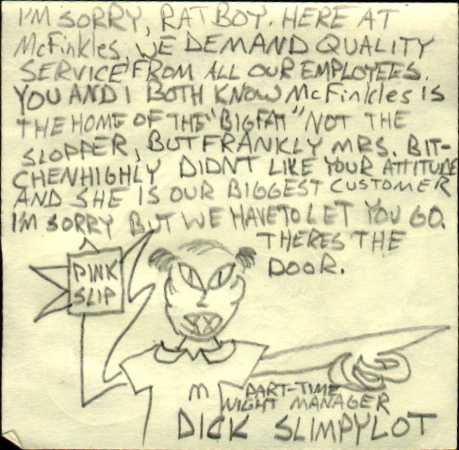 I'M SORRY, RAT BOY. HERE AT
McFINKLES, WE DEMAND QUALITY
SERVICE FROM ALL OUR EMPLOYEES.
YOU AND I BOTH KNOW McFinkles IS
THE HOME OF THE "BIG FAT" NOT THE
SLOPPER, BUT FRANKLY MRS. BIT-
CHENHIGHLY DIDNT LIKE YOUR ATTITUDE
AND SHE IS OUR BIGGEST CUSTOMER
I'M SORRY BUT WE HAVE TO LET YOU GO.
THERES THE
DOOR.
PINK
SLIP
M
PART-TIME
NIGHT MANAGER
DICK SLIMPYLOT